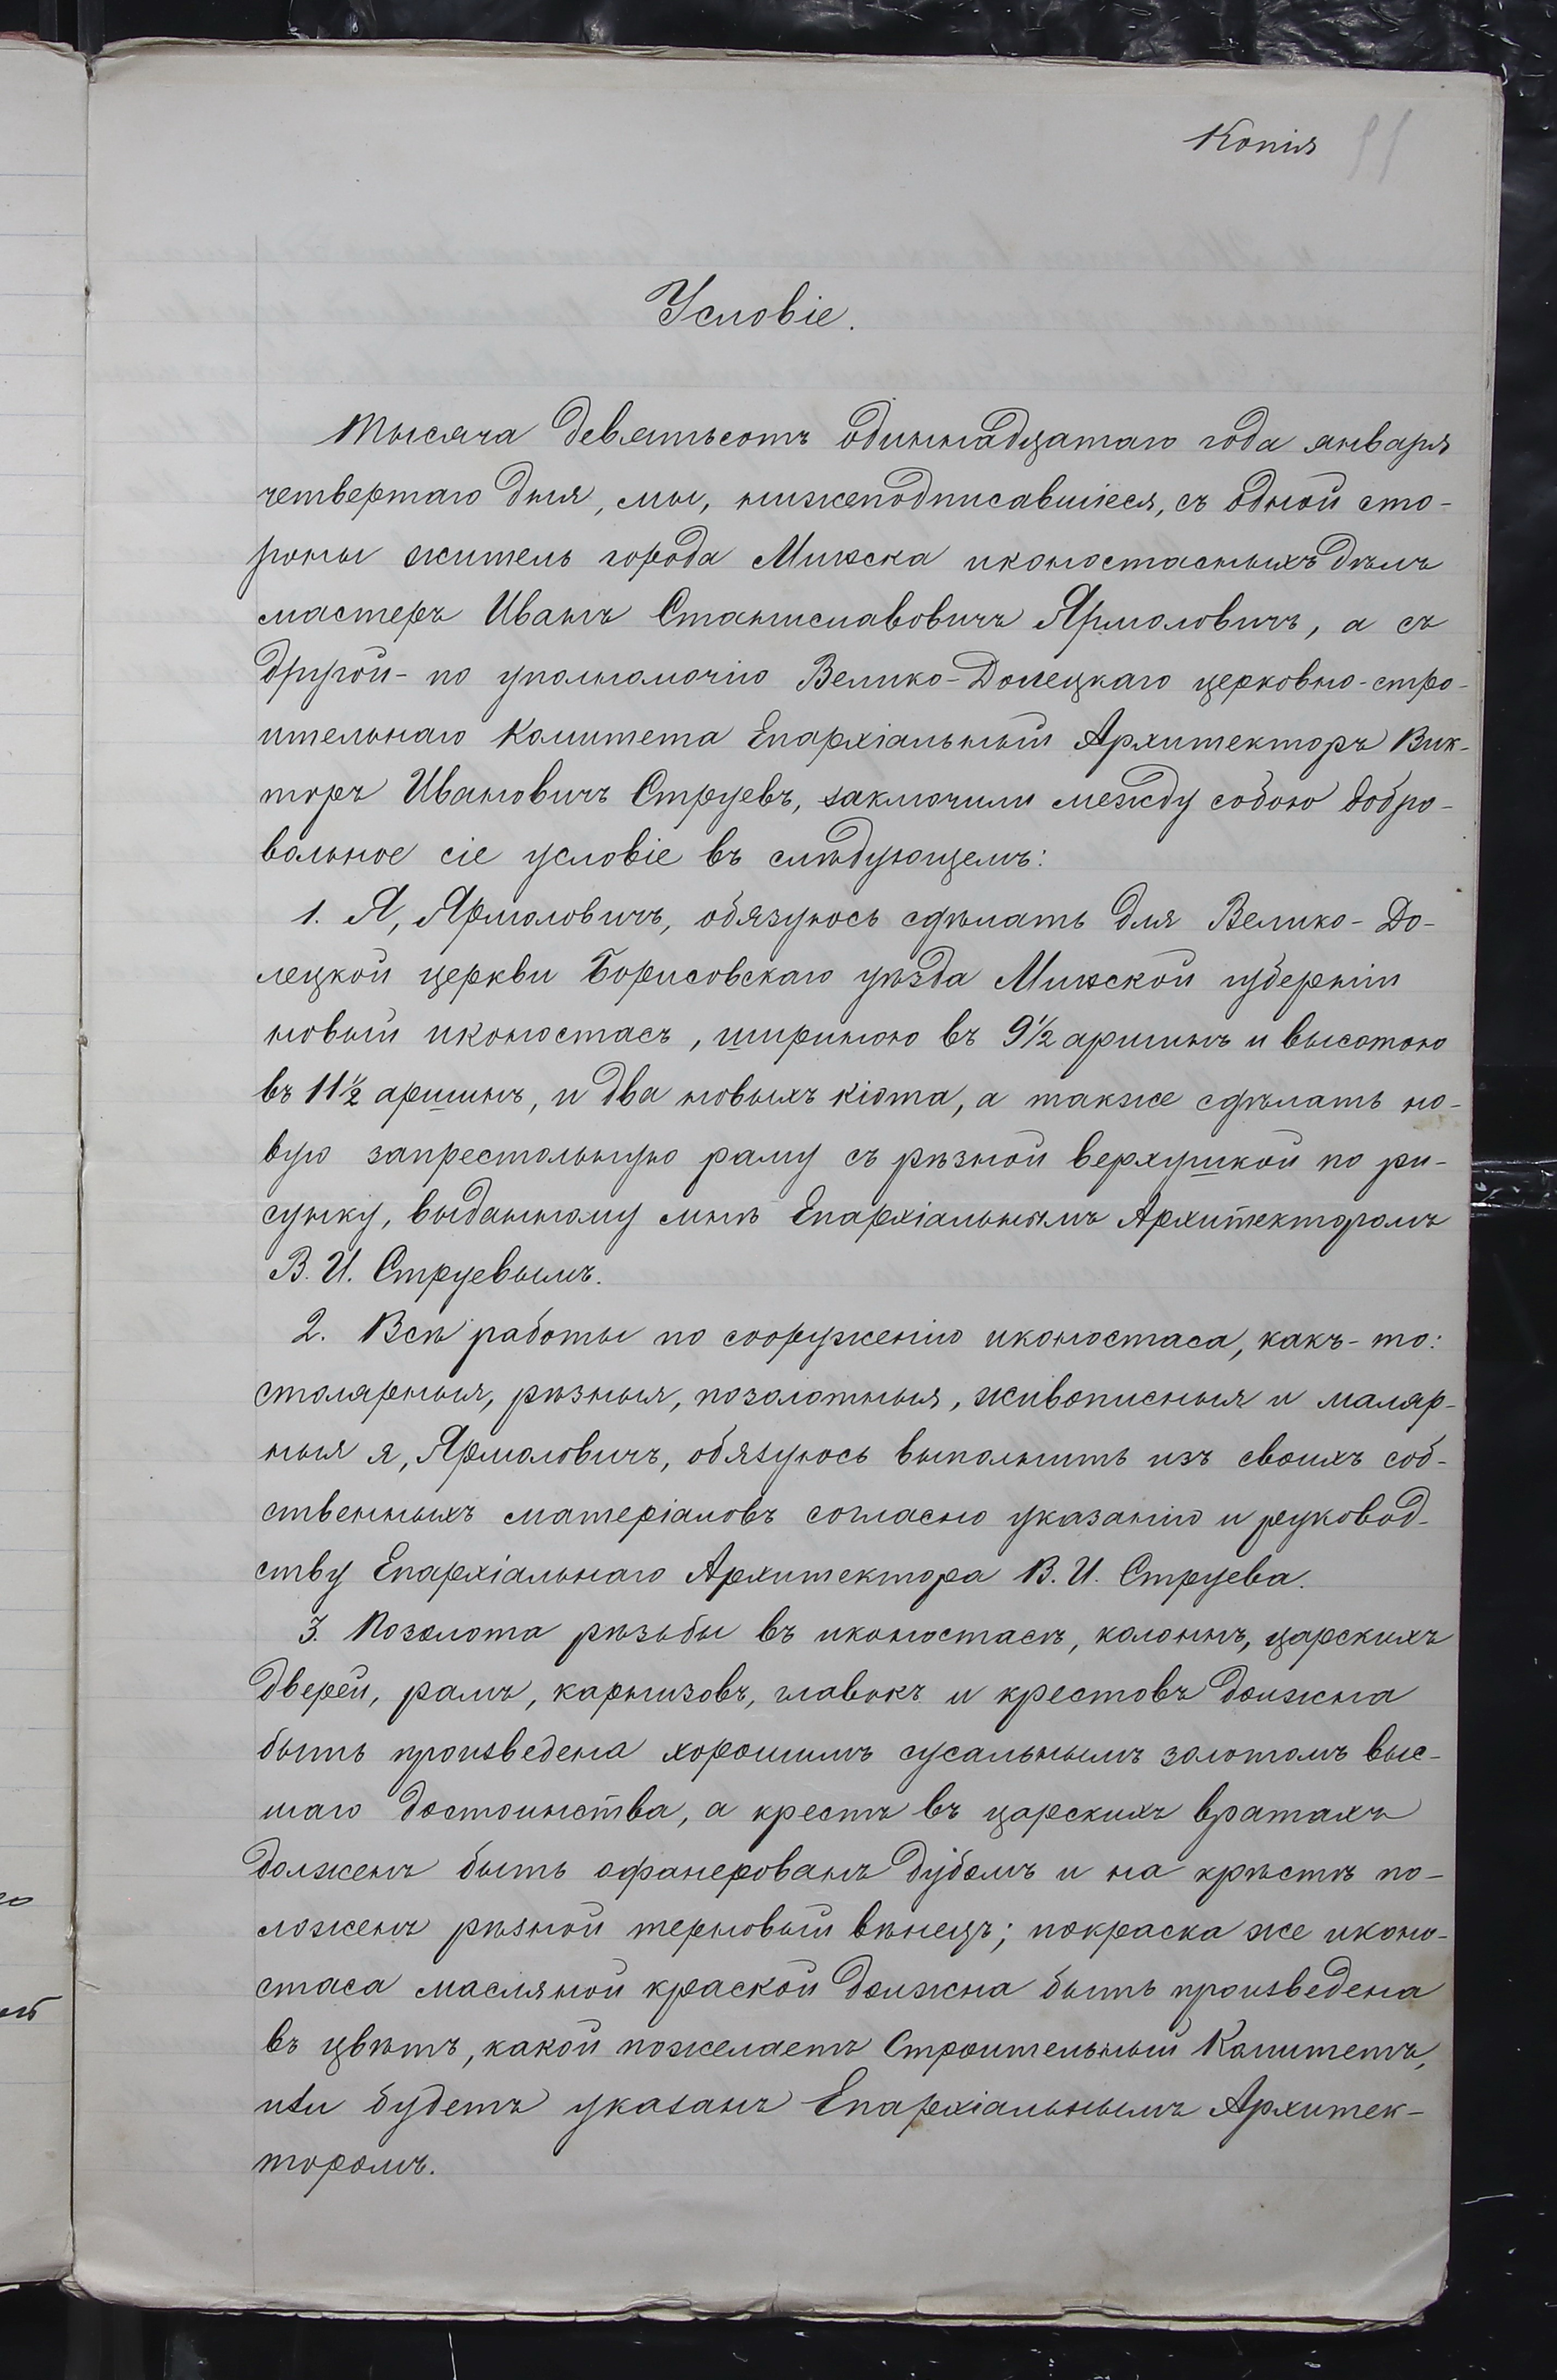 Копія
Условіе.
Тысяча девятьсотъ одиннадцатаго года января
четвертаго дня, мы, нижеподписавшіеся, съ одной сто-
роны житель города Минска иконостасныхъ дѣлъ
мастеръ Иванъ Станиславовичъ Ярмоловичъ, а съ
другой - по уполномочію Велико-Долецкаго церковно-стро-
ительнаго Комитета Епархіальный Архитекторъ Вик-
торъ Ивановичъ Струевъ, заключили между собою добро-
вольное сіе условіе въ слѣдующемъ:
1. Я, Ярмоловичъ, обязуюсь сдѣлать для Велико-До-
лецкой церкви Борисовскаго уѣзда Минской губерніи
новый иконостасъ, шириною въ 9½ аршинъ и высотою
въ 11½ аршинъ, и два новыхъ кіота, а также сдѣлать но-
вую запрестольную раму съ рѣзной верхушкой по ри-
сунку, выданному мнѣ Епархіальнымъ Архитекторомъ
В. И. Струевымъ.
2. Всѣ работы по сооруженію иконостаса, какъ-то:
столярныя, рѣзныя, позолотныя, живописныя и маляр-
ныя я, Ярмоловичъ, обязуюсь выполнить изъ своихъ соб-
ственныхъ матеріаловъ согласно указанію и руковод-
ству Епархіальнаго Архитектора В. И. Струева.
3. Позолота рѣзьбы въ иконостасѣ, колоннъ, царскихъ
дверей, рамъ, карнизовъ, главокъ и крестовъ должна
быть произведена хорошимъ сусальнымъ золотомъ выс-
шаго достоинства, а крестъ въ царскихъ вратахъ
долженъ быть офанерованъ дубомъ и на крѣстѣ по-
ложенъ рѣзной терновый вѣнецъ; покраска же иконо-
стаса масляной краской должна быть произведена
въ цвѣтъ, какой пожелаетъ Строительный Комитетъ,
или будетъ указанъ Епархіальнымъ Архитек-
торомъ.